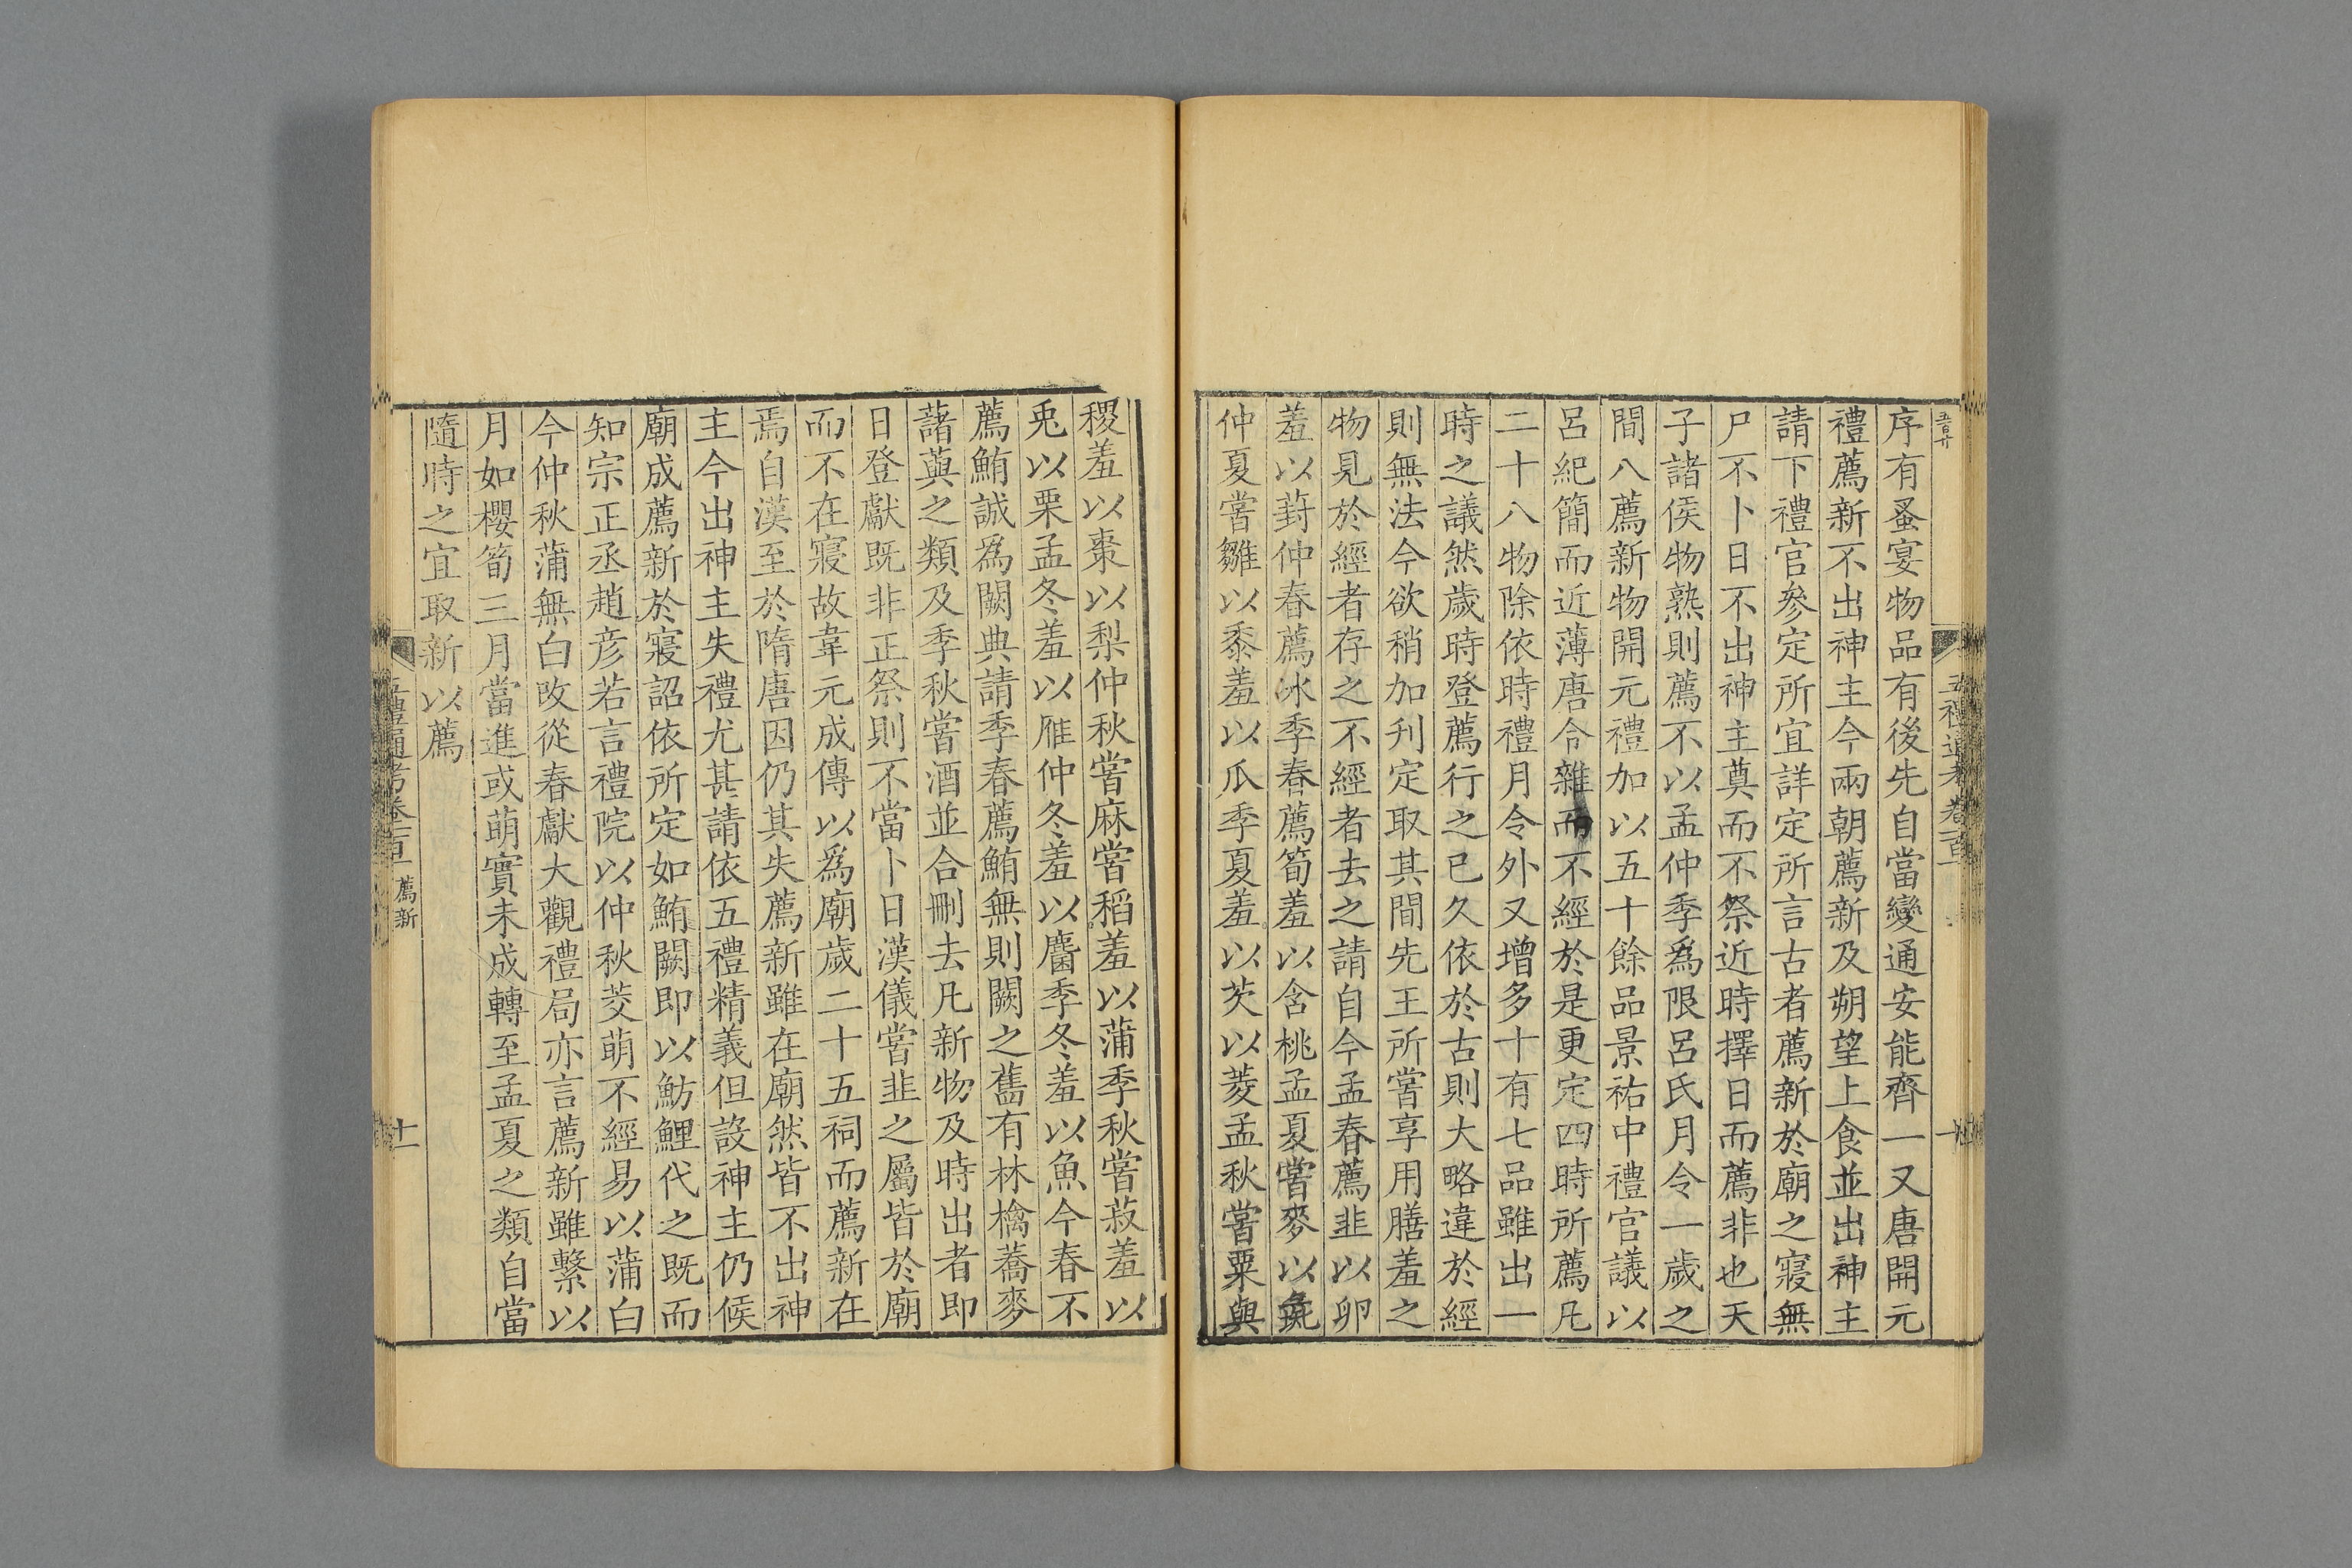 序有蚤宴物品有後先自當變通安能齊一又唐開元
禮薦新不出神主今兩朝薦新及朔望上食並出神主
請下禮官參定所宜詳定所言古者薦新於廟之寢無
尸不卜日不出神主奠而不祭近時擇日而薦非也天
子諸侯物熟則薦不以孟仲季爲限呂氏月令一歲之
間八薦新物開元禮加以五十餘品景祐中禮官議以
呂紀簡而近薄唐令雜而不經於是更定四時所薦凡
二十八物除依時禮月令外又增多十有七品雖出一
時之議然歲時登薦行之已久依於古則大略違於經
則無法今欲稍加刋定取其間先王所嘗享用膳羞之
物見於經者存之不經者去之請自今孟春薦韭以卵
羞以葑仲春薦冰季春薦筍羞以含桃孟夏嘗麥以彘
仲夏嘗雛以黍羞以瓜季夏羞以芡以菱孟秋嘗粟與
稷羞以棗以梨仲秋嘗麻嘗稻羞以蒲季秋嘗菽羞以
兎以栗孟冬羞以雁仲冬羞以麕季冬羞以魚今春不
薦鮪誠爲闕典請季春薦鮪無則闕之舊有林檎蕎麥
藷藇之類及季秋嘗酒並合刪去凡新物及時出者即
日登獻既非正祭則不當卜日漢儀嘗韭之屬皆於廟
而不在寢故韋元成傳以爲廟歲二十五祠而薦新在
焉自漢至於隋唐因仍其失薦新雖在廟然皆不出神
主今出神主失禮尤甚請依五禮精義但設神主仍候
廟成薦新於寢詔依所定如鮪闕即以魴鯉代之既而
知宗正丞趙彦若言禮院以仲秋茭萌不經易以蒲白
今仲秋蒲無白改從春獻大觀禮局亦言薦新雖繫以
月如櫻筍三月當進或萌實未成轉至孟夏之類自當
隨時之宜取新以薦
五禮通考卷一百一 薦新
十一